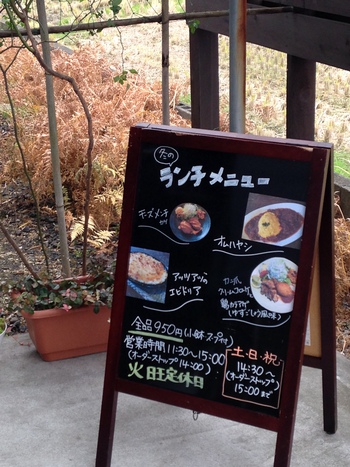 冬の
ランチメニュー
チーズメンチ
カツ
オムハヤシ
アツアツの
エビドリア
クリームコロッケ
全品950円(小鉢・スープ付)
営業時間11:30〜15:00
(オーダーストップ14:00)
火曜定休日
土・日・祝
14:30〜
(オーダーストップ)
15:00まで